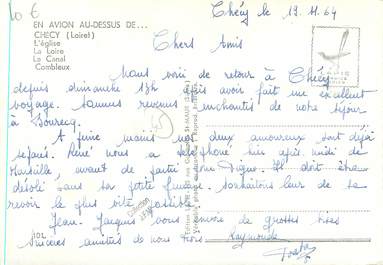 10 €
EN AVION AU-DESSUS DE...
CHECY (Loiret)
L'église
La Loire
Le Canal
Combleux
Chécy le 19.11.64
Chers Amis
Nous voici de retour à Chécy
depuis dimanche 13h après avoir fait un excellent
voyage. Sommes revenus enchantés de notre séjour
à Bourecq.
À peine mariés nos deux amoureux sont déjà
séparés. René nous a téléphoné hier après midi de
Marseille, avant de partir pour Digne. Il doit être
désolé sans sa petite femme. souhaitons leur de se
revoir le plus vite possible.
Jean-Jacques vous envoie de grosses bises
Sincères amitiés de nous trois
Raymonde
45